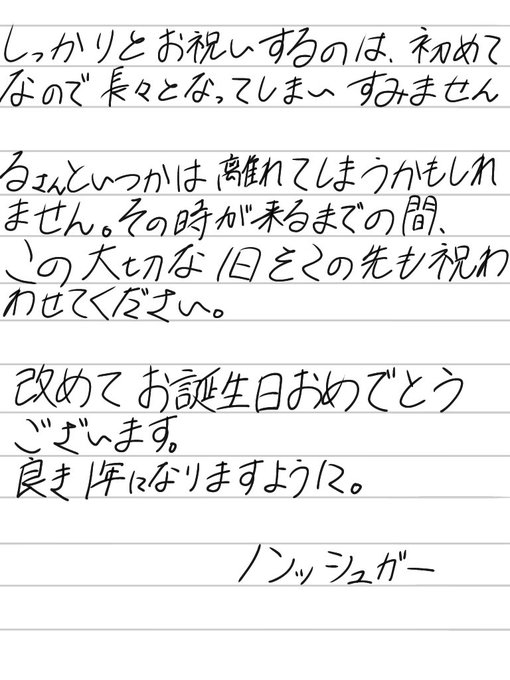 しっかりとお祝いするのは、初めて
なので長々となってしまいすみません
るさんといつかは離れてしまうかもしれ
ません。その時が来るまでの間、
この大切な1日をこの先も祝わ
わせてください。
改めてお誕生日おめでとう
ございます。
良き1年になりますように。
ノンッシュガー